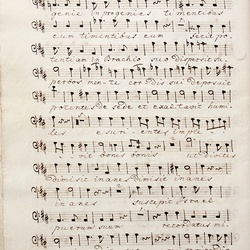 genie in progenies timentibus
eum timentibus eum fecit po
tentiam in Brachio suo Dispersit su
perbos mente Cordis sui Deposuit
potentes de Sede et exaltavit humi
les esurientes imple
vit bonis bonis et divites
Dimisit inanes Dimisit inanes
inanes suscepit Israel
puerum suum recordatus mi